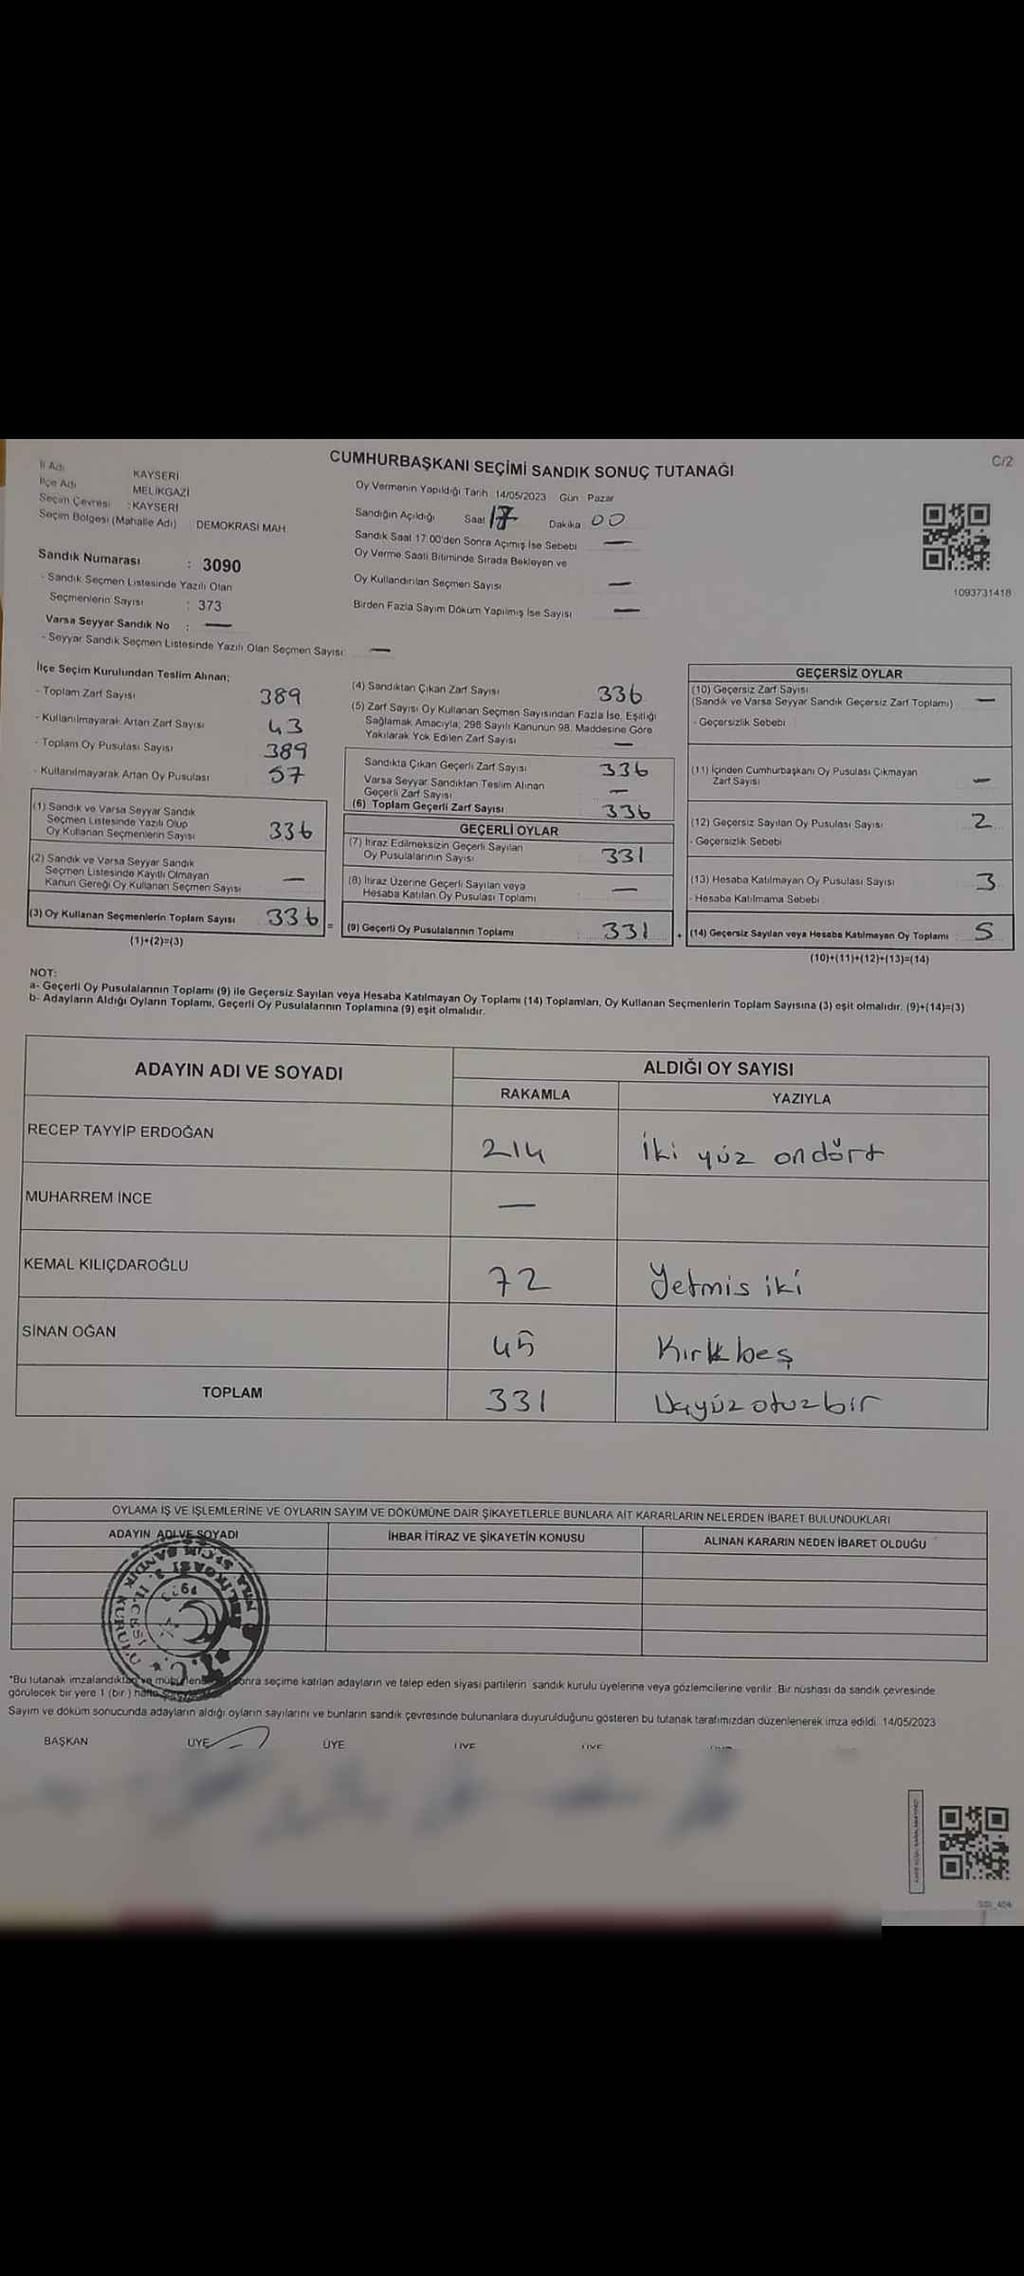 CUMHURBAŞKANI SEÇİMİ SANDIK SONUÇ TUTANAĞI
C/2
İl Adı : KAYSERİ
İlçe Adı : MELİKGAZİ
Seçim Çevresi : KAYSERİ
Seçim Bölgesi (Mahalle Adı) DEMOKRASİ MAH.
Sandık Numarası : 3090
- Sandık Seçmen Listesinde Yazılı Olan
Seçmenlerin Sayısı : 373
Varsa Seyyar Sandık No : —
- Seyyar Sandık Seçmen Listesinde Yazılı Olan Seçmen Sayısı: —
Oy Vermenin Yapıldığı Tarih 14/05/2023 Gün : Pazar
Sandığın Açıldığı Saat 17 Dakika : 00
Sandık Saat 17:00'den Sonra Açımış İse Sebebi —
Oy Verme Saati Bitiminde Sırada Bekleyen ve
Oy Kullandırılan Seçmen Sayısı —
Birden Fazla Sayım Döküm Yapılmış İse Sayısı —
1093731418
İlçe Seçim Kurulundan Teslim Alınan;
- Toplam Zarf Sayısı 389
- Kullanılmayarak Artan Zarf Sayısı 43
- Toplam Oy Pusulası Sayısı 389
- Kullanılmayarak Artan Oy Pusulası 57
(1) Sandık ve Varsa Seyyar Sandık
Seçmen Listesinde Yazılı Olup
Oy Kullanan Seçmenlerin Sayısı 336
(2) Sandık ve Varsa Seyyar Sandık
Seçmen Listesinde Kayıtlı Olmayan
Kanun Gereği Oy Kullanan Seçmen Sayısı —
(3) Oy Kullanan Seçmenlerin Toplam Sayısı 336 =
(1)+(2)=(3)
(4) Sandıktan Çıkan Zarf Sayısı 336
(5) Zarf Sayısı Oy Kullanan Seçmen Sayısından Fazla İse, Eşitliği
Sağlamak Amacıyla, 298 Sayılı Kanunun 98. Maddesine Göre
Yakılarak Yok Edilen Zarf Sayısı —
Sandıkta Çıkan Geçerli Zarf Sayısı 336
Varsa Seyyar Sandıktan Teslim Alınan
Geçerli Zarf Sayısı —
(6) Toplam Geçerli Zarf Sayısı 336
GEÇERLİ OYLAR
(7) İtiraz Edilmeksizin Geçerli Sayılan
Oy Pusulalarının Sayısı 331
(8) İtiraz Üzerine Geçerli Sayılan veya
Hesaba Katılan Oy Pusulası Toplamı —
(9) Geçerli Oy Pusulalarının Toplamı : 331 +
GEÇERSİZ OYLAR
(10) Geçersiz Zarf Sayısı
(Sandık ve Varsa Seyyar Sandık Geçersiz Zarf Toplamı) —
- Geçersizlik Sebebi
(11) İçinden Cumhurbaşkanı Oy Pusulası Çıkmayan
Zarf Sayısı —
(12) Geçersiz Sayılan Oy Pusulası Sayısı 2
- Geçersizlik Sebebi
(13) Hesaba Katılmayan Oy Pusulası Sayısı 3
- Hesaba Katılmama Sebebi
(14) Geçersiz Sayılan veya Hesaba Katılmayan Oy Toplamı 5
(10)+(11)+(12)+(13)=(14)
NOT:
a- Geçerli Oy Pusulalarının Toplamı (9) ile Geçersiz Sayılan veya Hesaba Katılmayan Oy Toplamı (14) Toplamları, Oy Kullanan Seçmenlerin Toplam Sayısına (3) eşit olmalıdır. (9)+(14)=(3)
b- Adayların Aldığı Oyların Toplamı, Geçerli Oy Pusulalarının Toplamına (9) eşit olmalıdır.
ADAYIN ADI VE SOYADI ALDIĞI OY SAYISI
RAKAMLA YAZIYLA
RECEP TAYYİP ERDOĞAN 214 İki yüz ondört
MUHARREM İNCE —
KEMAL KILIÇDAROĞLU 72 Yetmis iki
SİNAN OĞAN 45 Kırkbeş
TOPLAM 331 Üçyüzotuzbir
OYLAMA İŞ VE İŞLEMLERİNE VE OYLARIN SAYIM VE DÖKÜMÜNE DAİR ŞİKAYETLERLE BUNLARA AİT KARARLARIN NELERDEN İBARET BULUNDUKLARI
ADAYIN ADI VE SOYADI İHBAR İTİRAZ VE ŞİKAYETİN KONUSU ALINAN KARARIN NEDEN İBARET OLDUĞU
T.C.
*Bu tutanak imzalandıktan ve mühürlen sonra seçime katılan adayların ve talep eden siyasi partilerin sandık kurulu üyelerine veya gözlemcilerine verilir. Bir nüshası da sandık çevresinde
görülecek bir yere 1 (bir) hafta
Sayım ve döküm sonucunda adayların aldığı oyların sayılarını ve bunların sandık çevresinde bulunanlara duyurulduğunu gösteren bu tutanak tarafımızdan düzenlenerek imza edildi. 14/05/2023
BAŞKAN ÜYE ÜYE ÜYE ÜYE